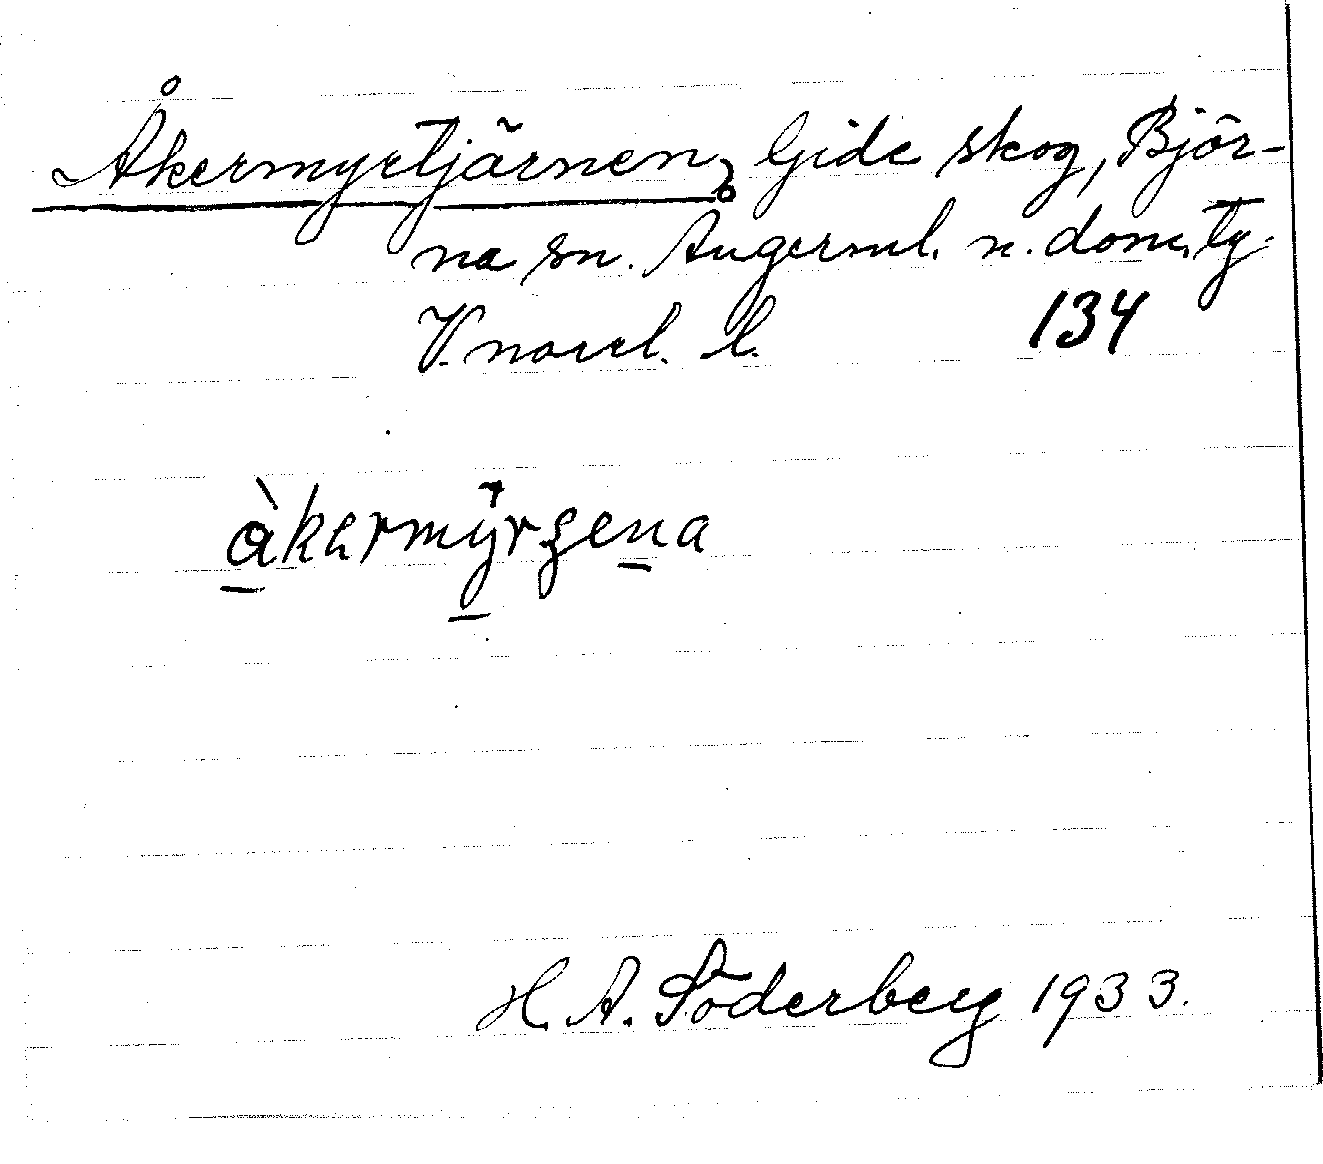 Åkermyrtjärnen, Gide skog, Björ-
na sn. Ångerml. n. doms. tg.
V. norrl. l. 134
åkermyrʒena
H. A. Söderberg 1933.